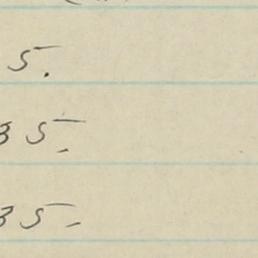 5.
35-
35-